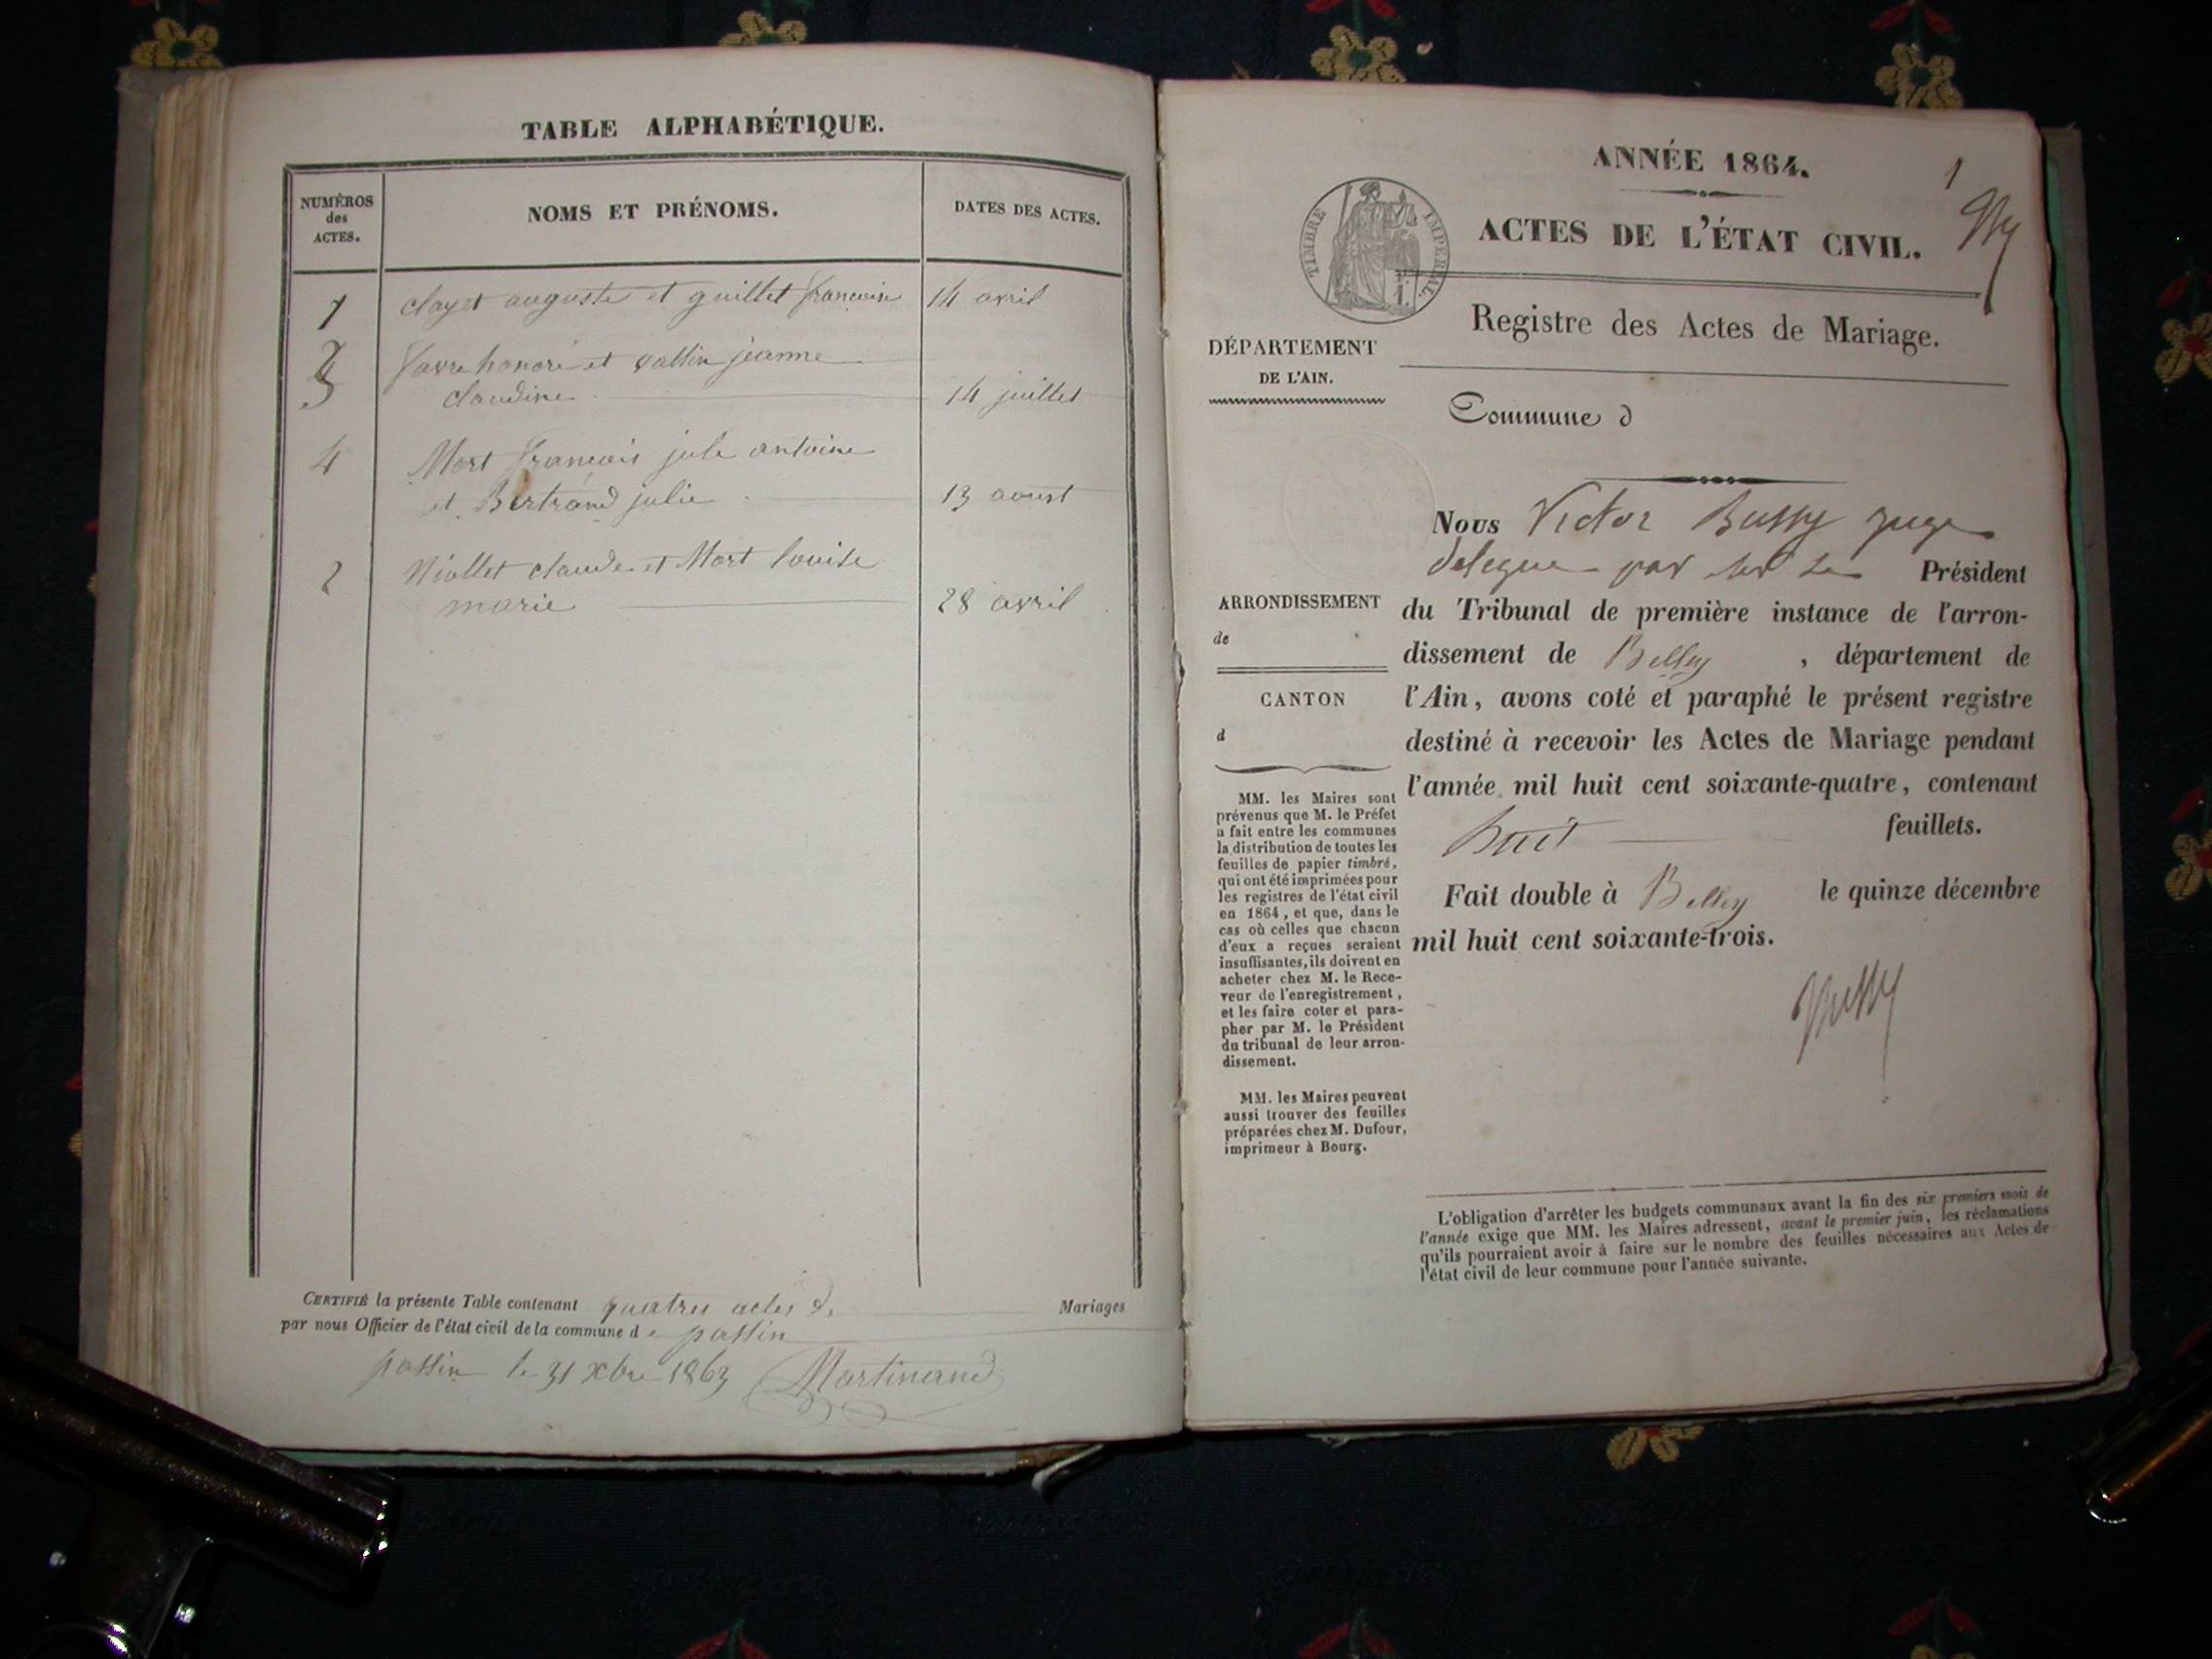 TABLE ALPHABÉTIQUE.
NUMÉROS
des
ACTES.
NOMS ET PRÉNOMS.
DATES DES ACTES.
1 clayet auguste et guillet francoise 14 avril
3 favre honoré et vallin jeanne
claudine 14 juillet
4 Mort francois jule antoine
et Bertrand julie 13 aoust
2 Niollet claude et Mort louise
marie 28 avril
CERTIFIÉ la présente Table contenant quatres actes de Mariages
par nous Officier de l'état civil de la commune de passin
passin le 31 Xbre 1863 Martinand
1
ANNÉE 1864.
ACTES DE L'ÉTAT CIVIL.
TIMBRE IMPERIAL.
Registre des Actes de Mariage.
DÉPARTEMENT
DE L'AIN.
Commune d
Nous Victor Bussy juge
delegue par Président
ARRONDISSEMENT
de
du Tribunal de première instance de l'arron-
dissement de Belley, département de
CANTON
d
l'Ain, avons coté et paraphé le présent registre
destiné à recevoir les Actes de Mariage pendant
l'année mil huit cent soixante-quatre, contenant
huit feuillets.
Fait double à Belley le quinze décembre
mil huit cent soixante-trois.
Bussy
MM. les Maires sont
prévenus que M. le Préfet
a fait entre les communes
la distribution de toutes les
feuilles de papier timbré,
qui ont été imprimées pour
les registres de l'état civil
en 1864, et que, dans le
cas où celles que chacun
d'eux a reçues seraient
insuffisantes, ils doivent en
acheter chez M. le Rece-
veur de l'enregistrement,
et les faire coter et para-
pher par M. le Président
du tribunal de leur arron-
dissement.
MM. les Maires peuvent
aussi trouver des feuilles
préparées chez M. Dufour,
imprimeur à Bourg.
L'obligation d'arrêter les budgets communaux avant la fin des six premiers mois de
l'année exige que MM. les Maires adressent, avant le premier juin, les réclamations
qu'ils pourraient avoir à faire sur le nombre des feuilles nécessaires aux Actes de
l'état civil de leur commune pour l'année suivante.